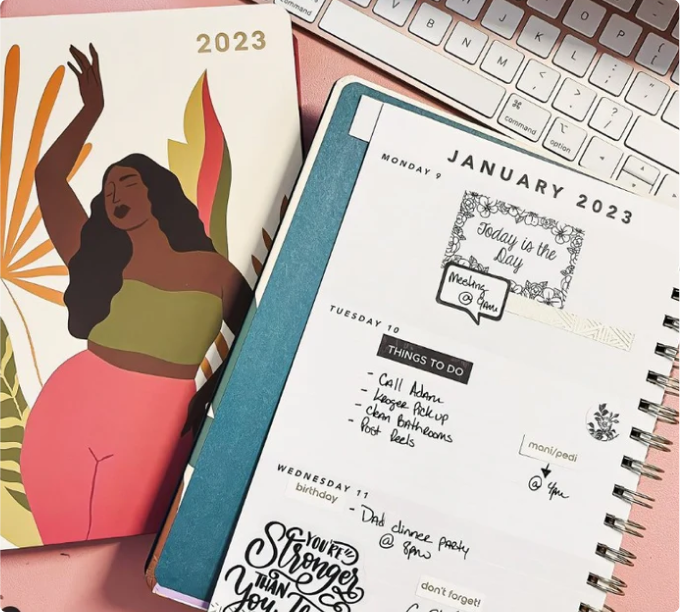 2023
command
V
B
N
M
J
K
L
P
<
,
>
.
?
/
⌘
command
option
JANUARY 2023
MONDAY 9
Today is the
Day
Meeting
@ 9am
TUESDAY 10
THINGS TO DO
- Call Adam
- Kroger Pickup
- Clean Bathrooms
- Post Reels
mani/pedi
@ 4pm
WEDNESDAY 11
birthday
- Dad dinner party
@ 8pm
YOU'RE
Stronger
THAN
You
don't forget!